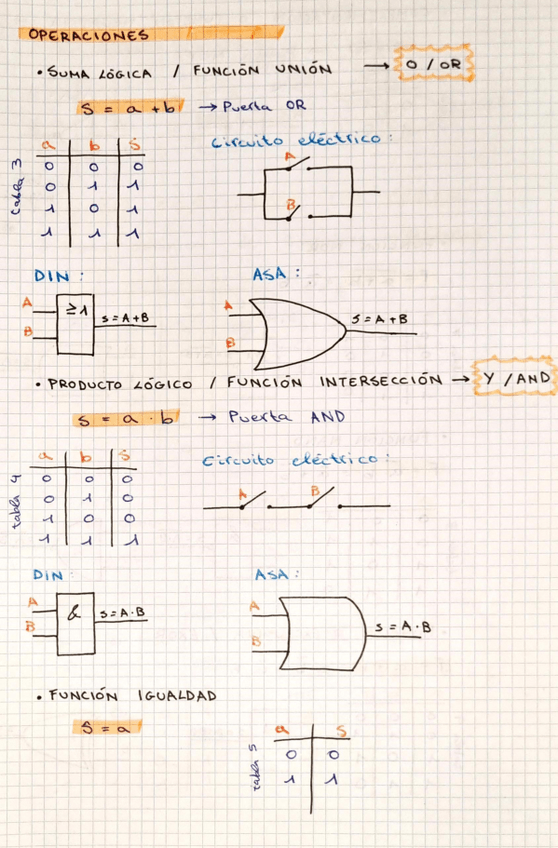 OPERACIONES
• SUMA LÓGICA / FUNCIÓN UNIÓN → O / OR
S = a + b → Puerta OR
Circuito eléctrico:
tabla 3
a b S
0 0 0
0 1 1
1 0 1
1 1 1
A
B
DIN :
A
B
≥1
S = A+B
ASA :
A
B
S = A+B
• PRODUCTO LÓGICO / FUNCIÓN INTERSECCIÓN → Y / AND
S = a · b → Puerta AND
Circuito eléctrico:
tabla 4
a b S
0 0 0
0 1 0
1 0 0
1 1 1
A B
DIN :
A
B
&
S = A·B
ASA :
A
B
S = A·B
• FUNCIÓN IGUALDAD
S = a
tabla 5
a S
0 0
1 1